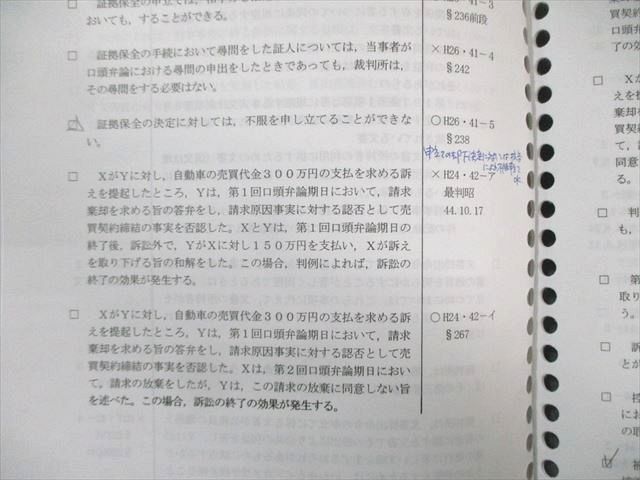 おいても，することができる。
§236前段
□ 証拠保全の手続において尋問をした証人については，当事者が
口頭弁論における尋問の申出をしたときであっても，裁判所は，
その尋問をする必要はない。
×H26・41－4
§242
□ 証拠保全の決定に対しては，不服を申し立てることができな
い。
○H26・41－5
§238
□ XがYに対し，自動車の売買代金３００万円の支払を求める訴
えを提起したところ，Yは，第１回口頭弁論期日において，請求
棄却を求める旨の答弁をし，請求原因事実に対する認否として売
買契約締結の事実を否認した。XとYは，第１回口頭弁論期日の
終了後，訴訟外で，YがXに対し１５０万円を支払い，Xが訴え
を取り下げる旨の和解をした。この場合，判例によれば，訴訟の
終了の効果が発生する。
×H24・42－ア
最判昭
44.10.17
□ XがYに対し，自動車の売買代金３００万円の支払を求める訴
えを提起したところ，Yは，第１回口頭弁論期日において，請求
棄却を求める旨の答弁をし，請求原因事実に対する認否として売
買契約締結の事実を否認した。Xは，第２回口頭弁論期日におい
て，請求の放棄をしたが，Yは，この請求の放棄に同意しない旨
を述べた。この場合，訴訟の終了の効果が発生する。
○H24・42－イ
§267
棄却
買契
の効
□ X
えを
棄却
買契
て，
を述
□ 判
□ 第
取り
う。
□ 訴
とが
□ 控
にお
の取